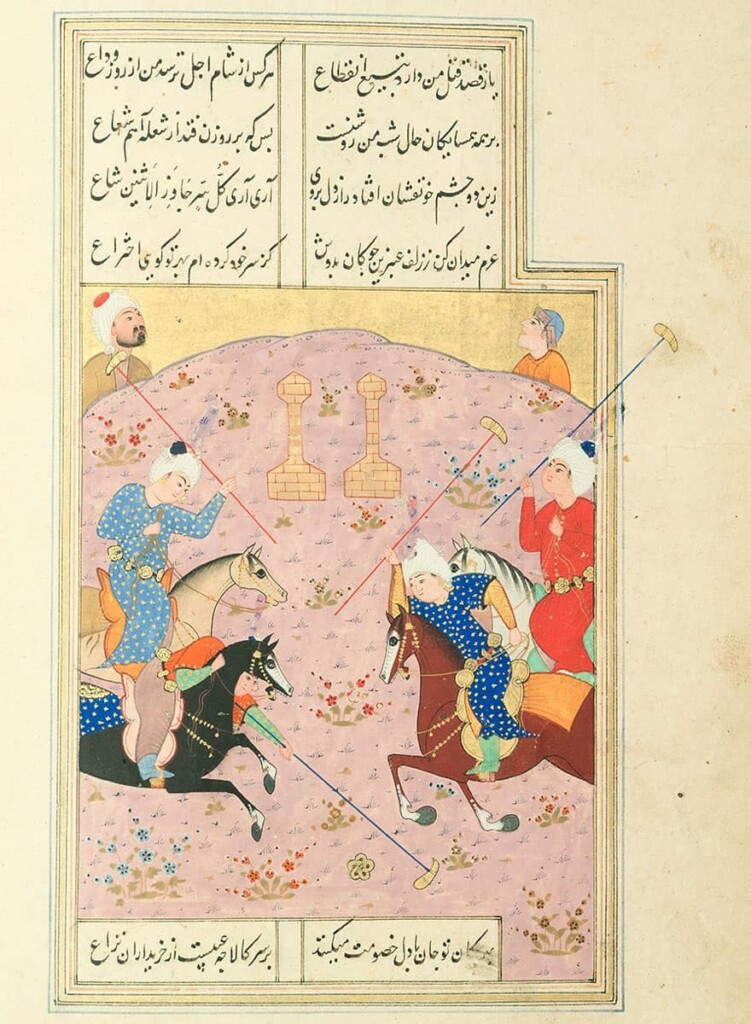 باز قصد قتل من دارد بتیغ انقطاع هر کس از شام اجل ترسد من از روز وداع
بر همه همسایکان حال شب من روشنست بس که بر روزن فتد از شعله آهم شعاع
زین دو چشم خونفشان افتاد راز دل بروی آری آری کُلُّ سِرٍّ جاوَزَ الاِثنَین شاع
عزم میدان کن ز زلف عنبرین چوکان بدوش کز سر خود کرده ام بهر تو کویی اختراع
تو جان با دل خصومت میکند بر سر کالا چه عیبست از خریداران نزاع